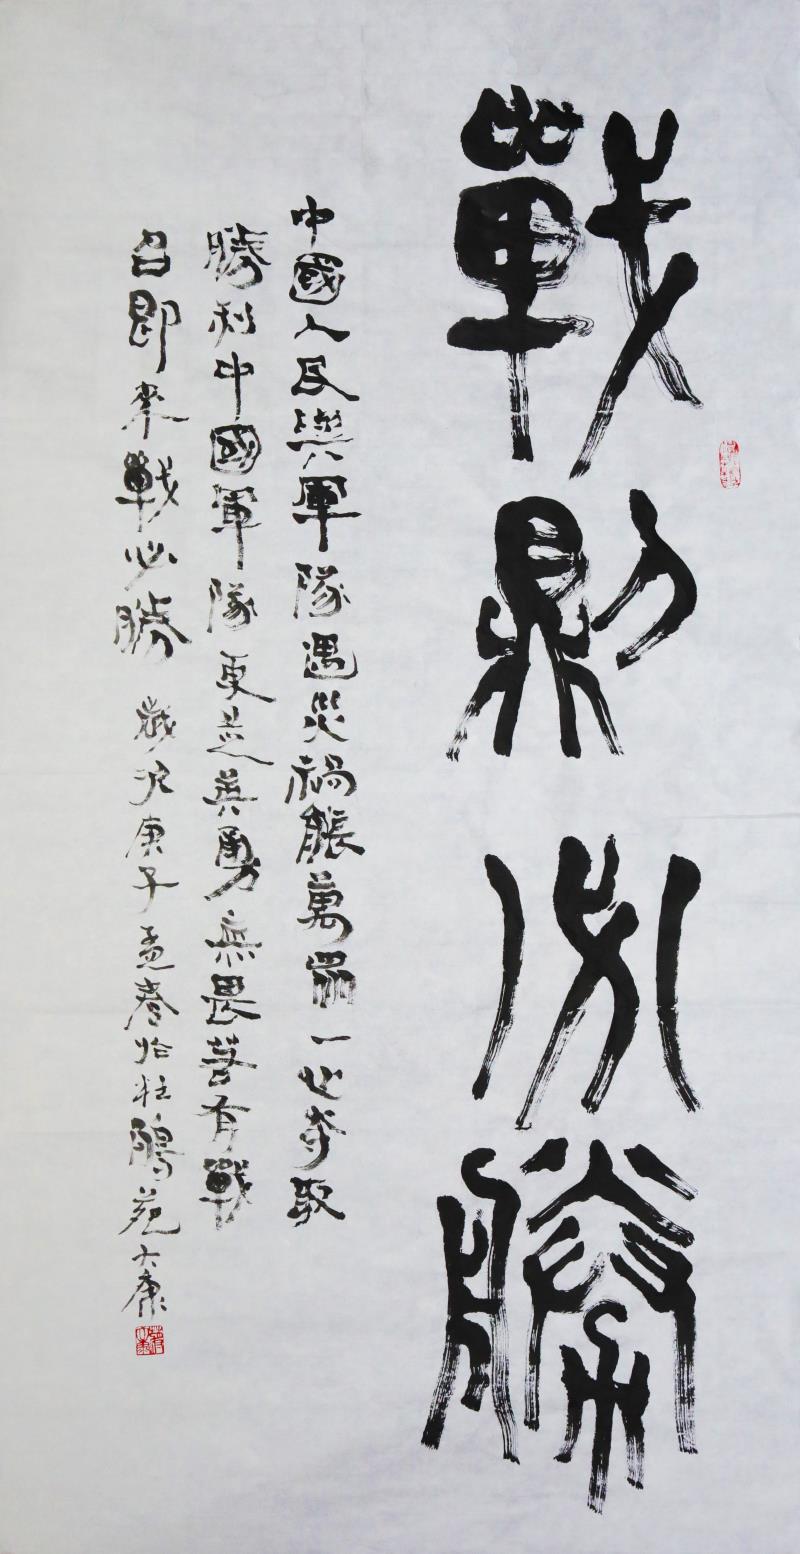 戰則必勝
中國人民與軍隊遇災禍能萬眾一心奪取
勝利中國軍隊更是英勇無畏若有戰
召即來戰必勝 歲次庚子孟春於苑大康